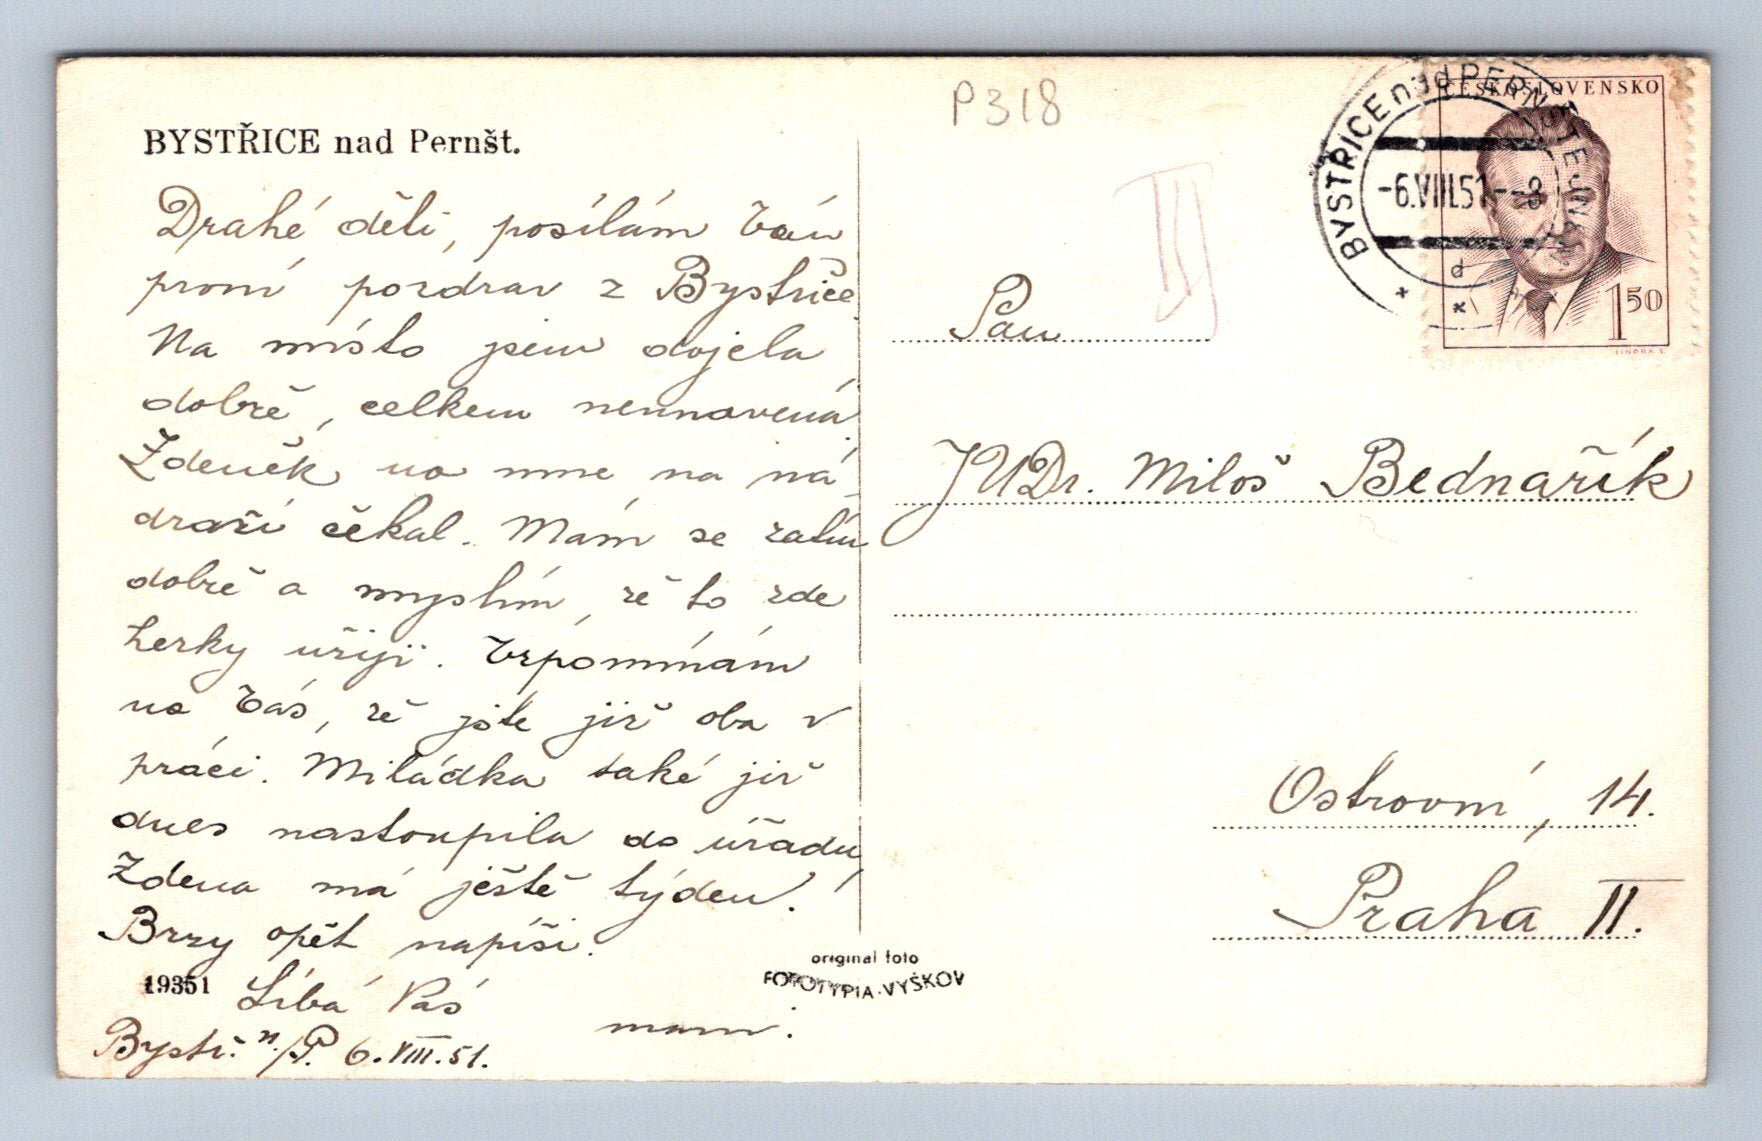 P318
BYSTŘICE nad Pernšt.
Drahé děti, posílám Vám
první pozdrav z Bystřice.
Na místo jsem dojela
dobře, celkem neunavená.
Zdeněk na mne na ná-
draží čekal. Mám se zatím
dobře a myslím, že to zde
hezky užiji. Vzpomínám
na Vás, že jste již oba v
práci. Miládka také již
dnes nastoupila do úřadu,
Zdena má ještě týden.
Brzy opět napíši.
Líbá Vás
mami.
Bystř. n./P. 6.VIII.51.
19351
original foto
FOTOTYPIA-VYŠKOV
BYSTŘICE nad PERNŠTEJNEM
-6.VIII.51--8
d
ČESKOSLOVENSKO
1 50
JINDRA S.
II
Pan
JUDr. Miloš Bednařík
Ostrovní, 14.
Praha II.